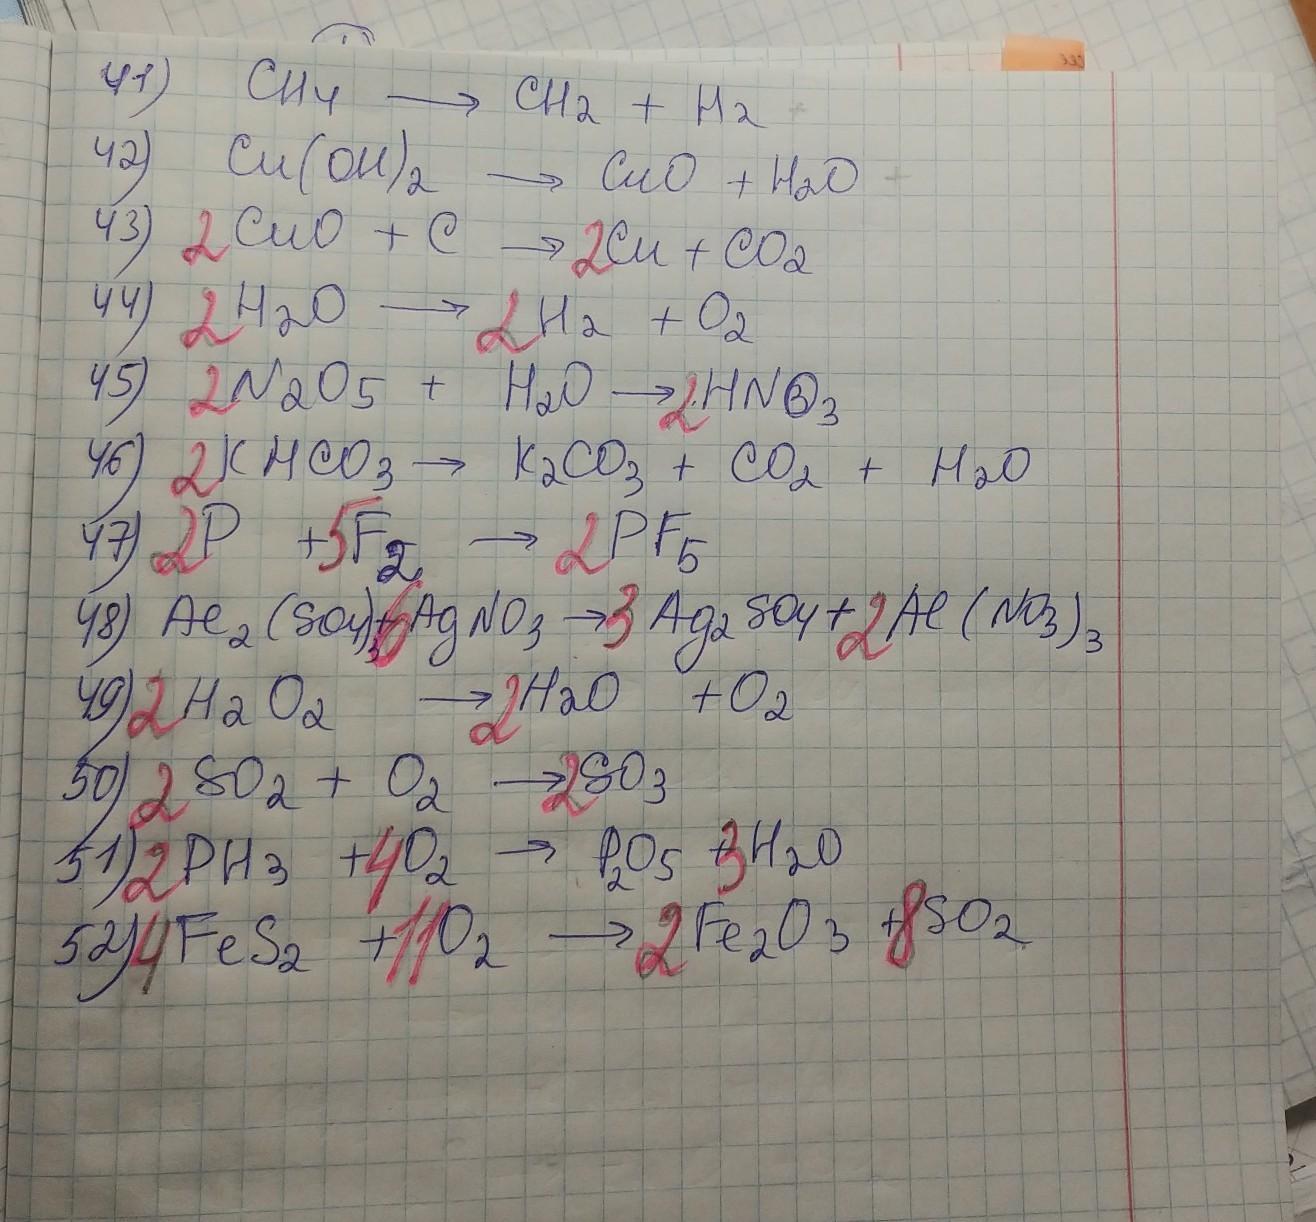 41) CH4 → CH2 + H2
42) Cu(OH)2 → CuO + H2O
43) 2CuO + C → 2Cu + CO2
44) 2H2O → 2H2 + O2
45) 2N2O5 + H2O → 2HNO3
46) 2KHCO3 → K2CO3 + CO2 + H2O
47) 2P + 5F2 → 2PF5
48) Al2(SO4)3+6AgNO3 → 3Ag2SO4+2Al(NO3)3
49) 2H2O2 → 2H2O + O2
50) 2SO2 + O2 → 2SO3
51) 2PH3 + 4O2 → P2O5 + 3H2O
52) 4FeS2 + 11O2 → 2Fe2O3 + 8SO2